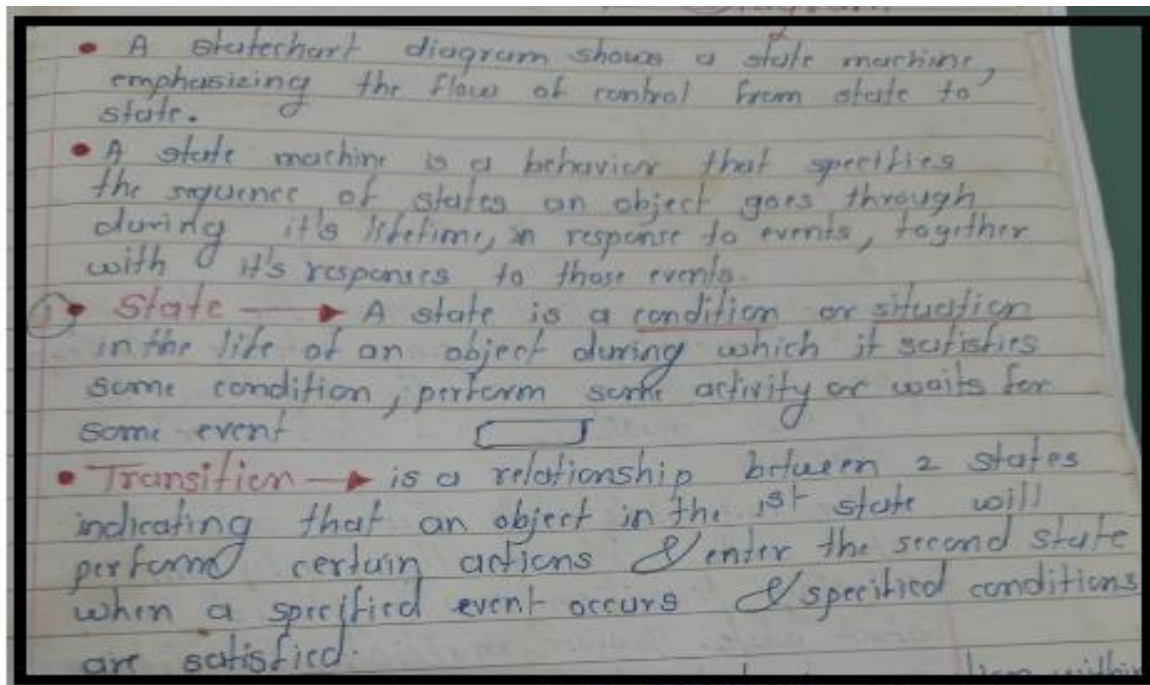 Diagram
• A statechart diagram shows a state machine,
emphasizing the flow of control from state to
state.
• A state machine is a behavior that specifies
the sequence of states an object goes through
during it's lifetime, in response to events, together
with it's responses to those events.
① • State → A state is a condition or situation
in the life of an object during which it satisfies
some condition, perform some activity or waits for
some event
• Transition → is a relationship between 2 states
indicating that an object in the 1st state will
perform certain actions & enter the second state
when a specified event occurs & specified conditions
are satisfied.
within